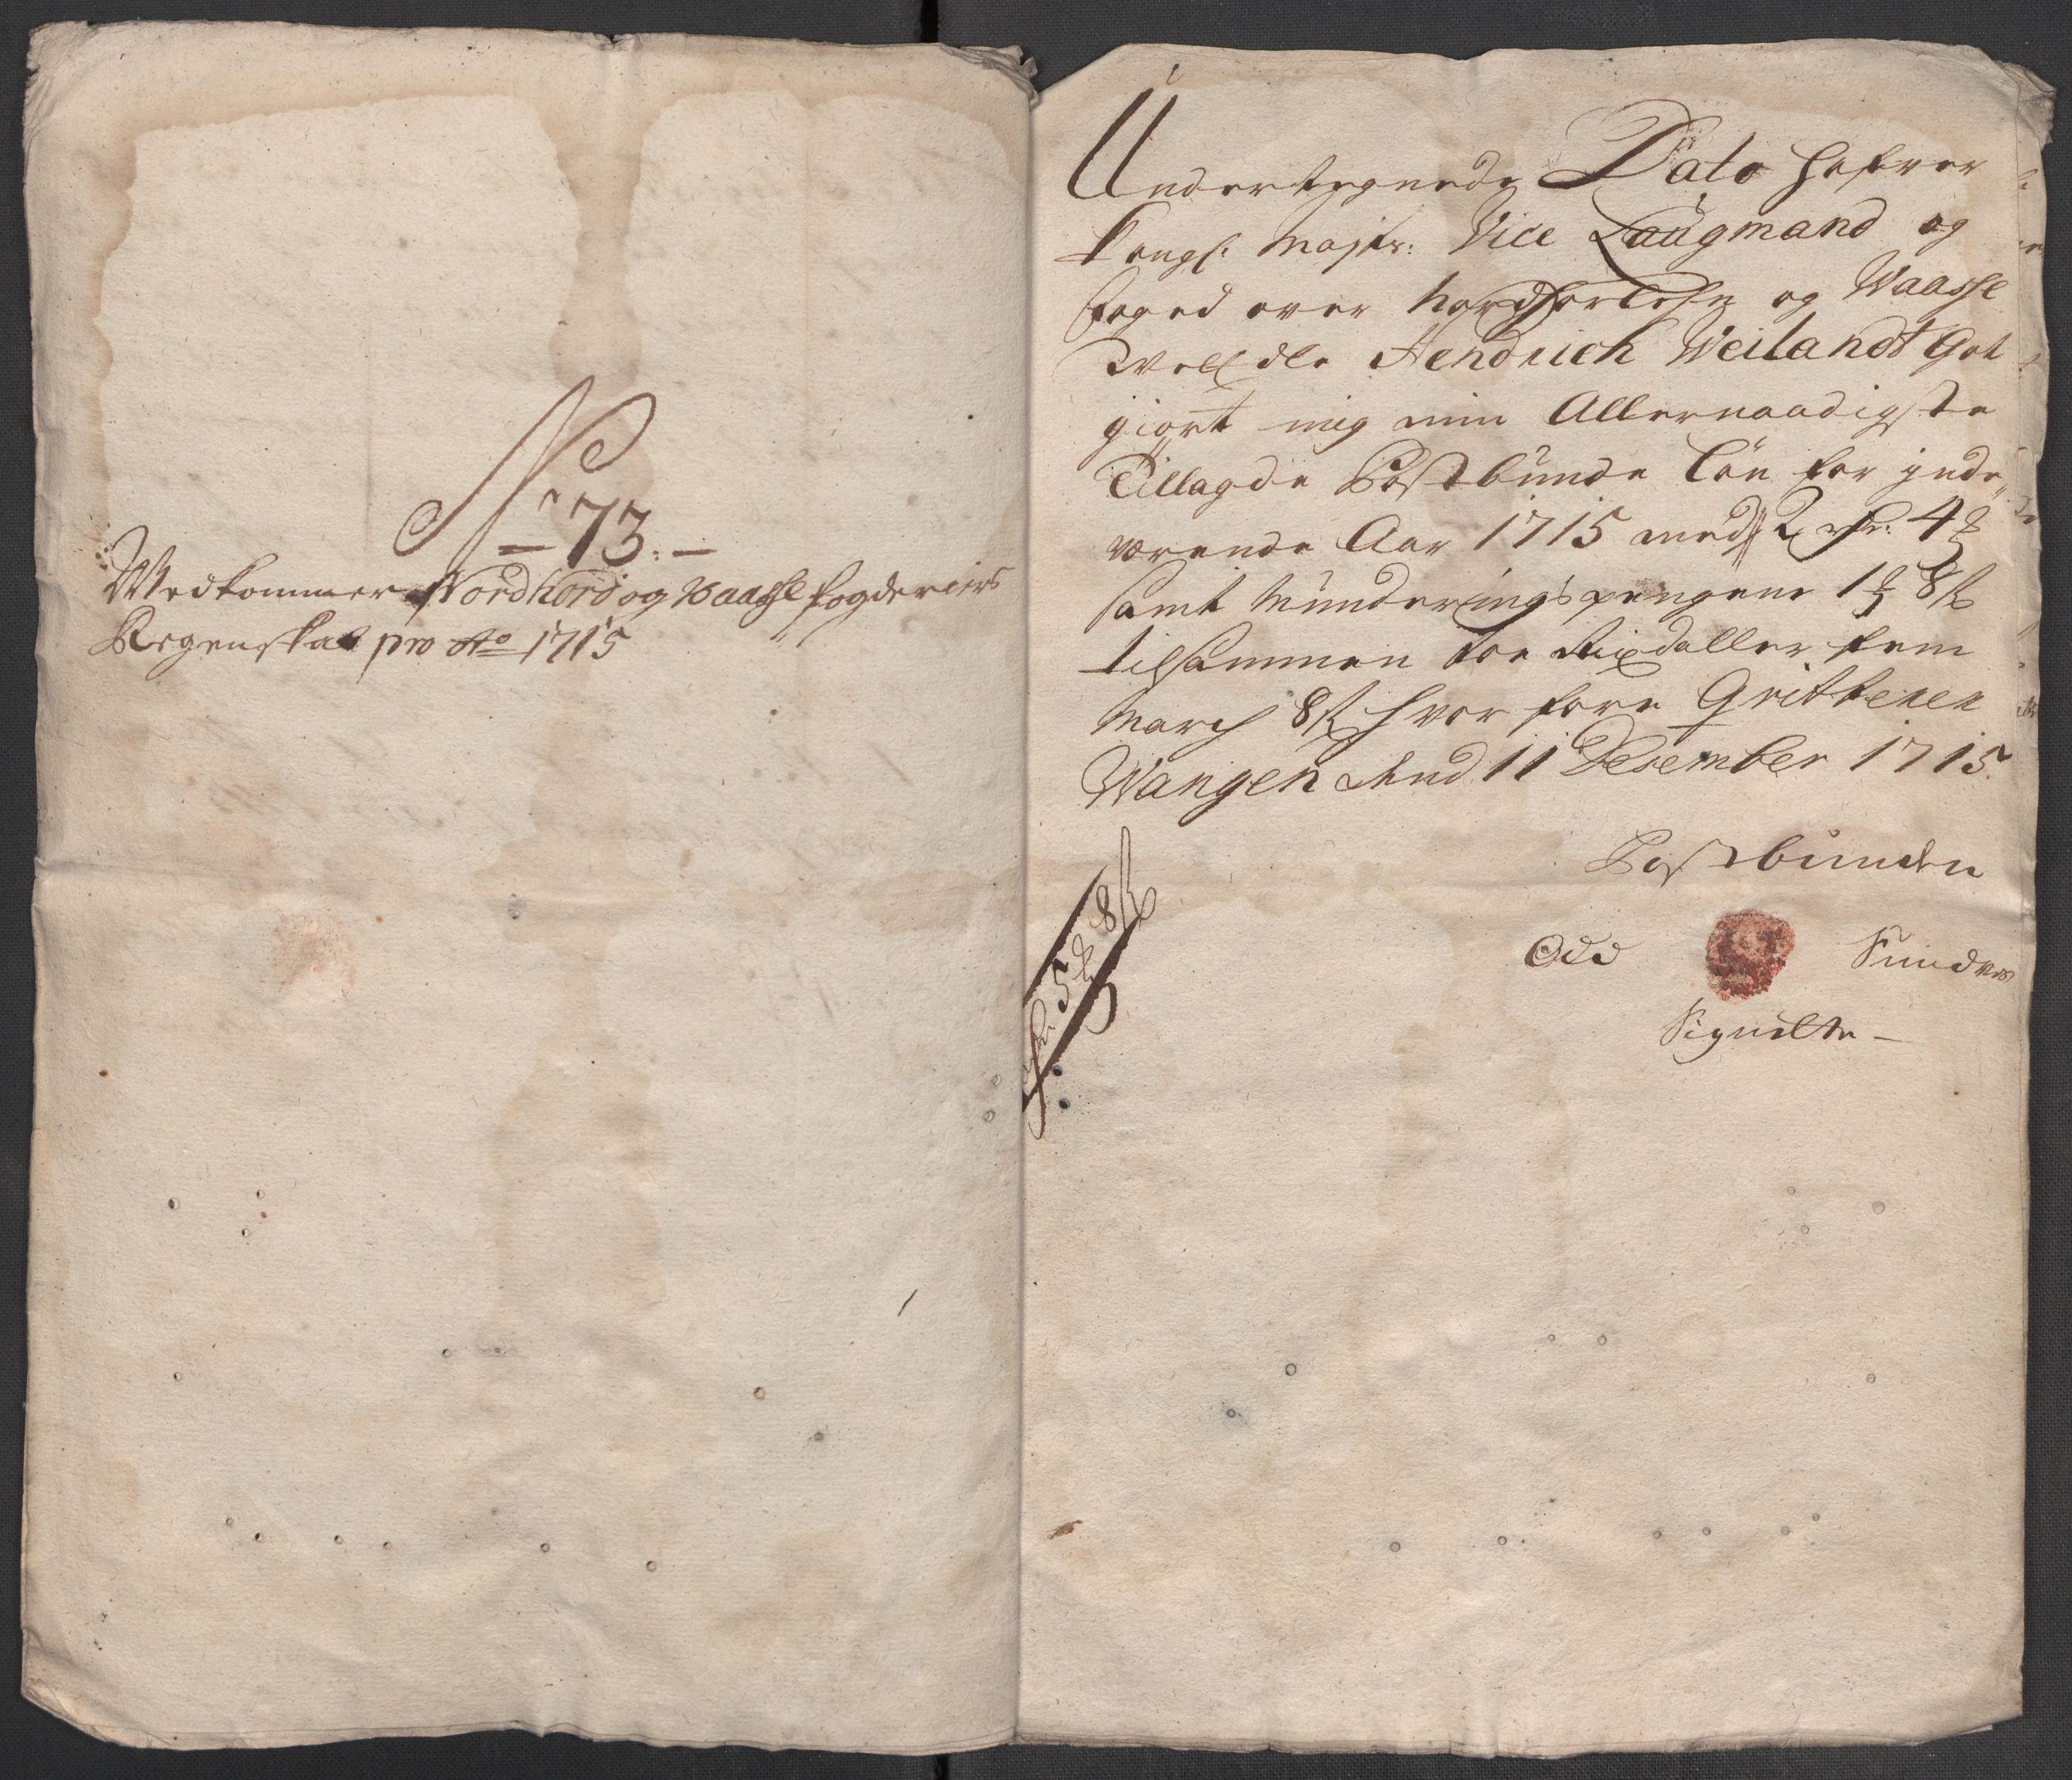 No 73.
Wedkommer Nordhord og Waasse fogderiers
Regenskab pro Ao 1715
Undertegnede Dato hafver
Kongl: Maijts: Vice Laugmand og
foged over Nordhorlehn og Waasse
Welædle Hendrich Weilandt Got
giort mig min Allernaadigste
Tillagde Postbunde Løn for inde-
værende Aar 1715 med 2 rdr: 4 mk
samt Munderings pengene 1 mk 8 s
tilsammen toe Rixdaller fem
March 8 s hvor fore Qvitterer
Wangen dend 11 Desember 1715
Postbunden
Odd Sundves
Signette
5 mk 8 s